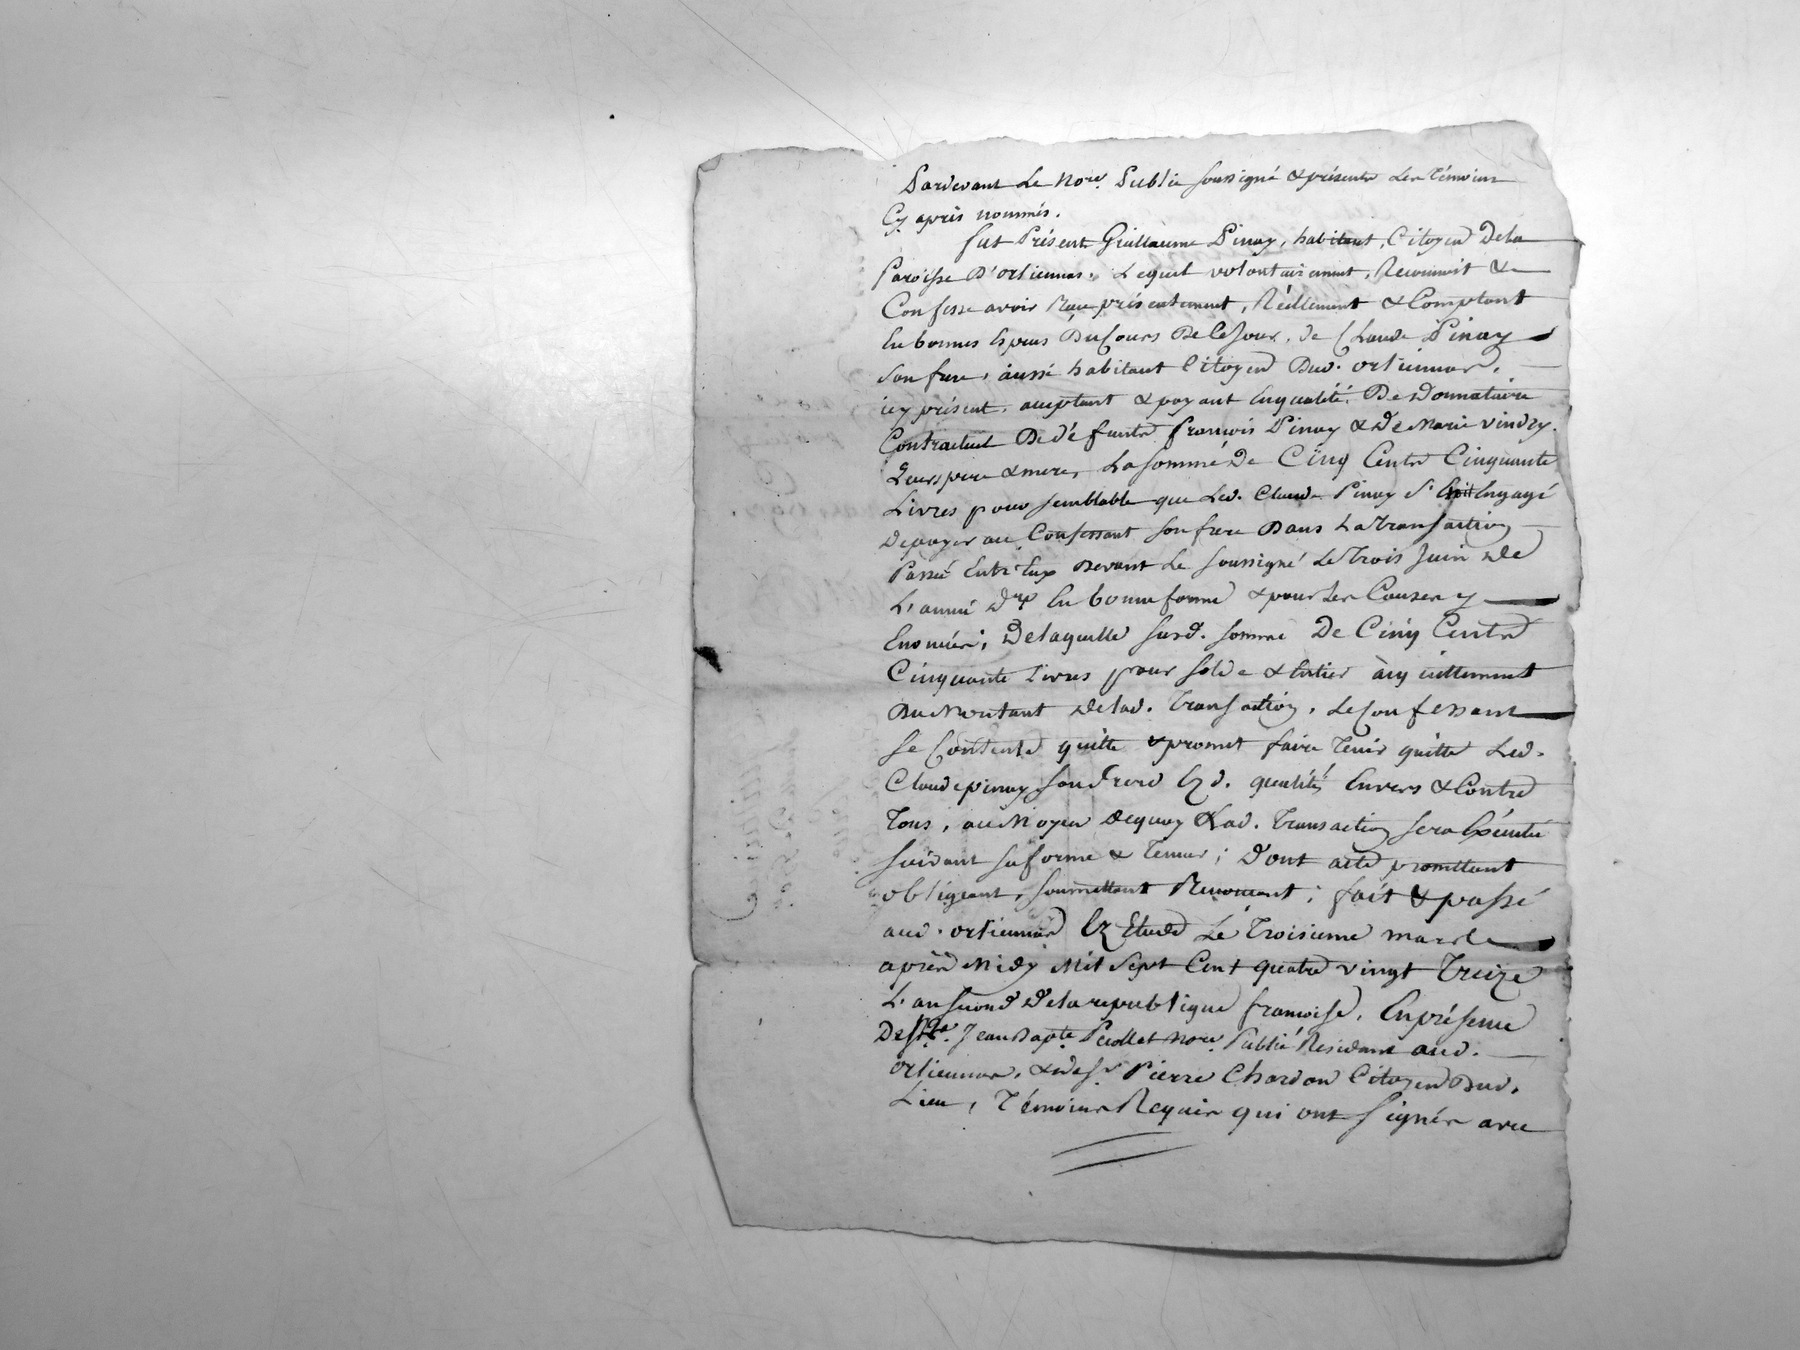 Pardevant Le Nore. Public soussigné & présents Les Témoins
Cy après nommés.
fut Présent Guillaume Pinay, habitant, Citoyen Dela
Paroisse D'orliennas. Lequel volontairement, Reconnoit &
Confesse avoir Reçu présentement, Réellement & Comptant
En bonnes Espèces Du Cours De Ce Jour, de Claude Pinay
Son frere, aussi habitant Citoyen Dud. orliennas,
icy présent, acceptant & payant En qualité De Donnataire
Contractuel De défunts françois Pinay & De Marie vindry.
Leurs pere & mere, La somme De Cinq Cents Cinquante
Livres pour semblable que Led. Claude Pinay S'Engagé
De payer au Confessant son frere Dans La Transaction
Passée Entr'Eux Devant Le soussigné Le Trois Juin De
L'année Dre En bonne forme & pour Les Causes y
Enoncées; De laquelle susd. somme De Cinq Cents
Cinquante Livres pour solde & Entier acquittement
Du Montant De lad. Transaction, Le Confessant
se Contente quitte & promet faire Tenir quitte Led.
Claude pinay son frere Ezd. qualités Envers & Contre
Tous, au Moyen De quoy Lad. Transaction sera Exécutée
suivant sa forme & Teneur; Dont acte promettant
obligeant, soumettant Renonceant; fait & passé
aud. orliennas Ez Etude Le Troisieme mars
après Midy Mil Sept Cent quatre vingt Treize
L'an second De la republique françoise, En présence
De Jean Bapte. Nore. Public Résidant aud.
orliennas, & de Sr. Pierre Chardon Citoyen Dud.
Lieu, Témoins Requis qui ont signés avec